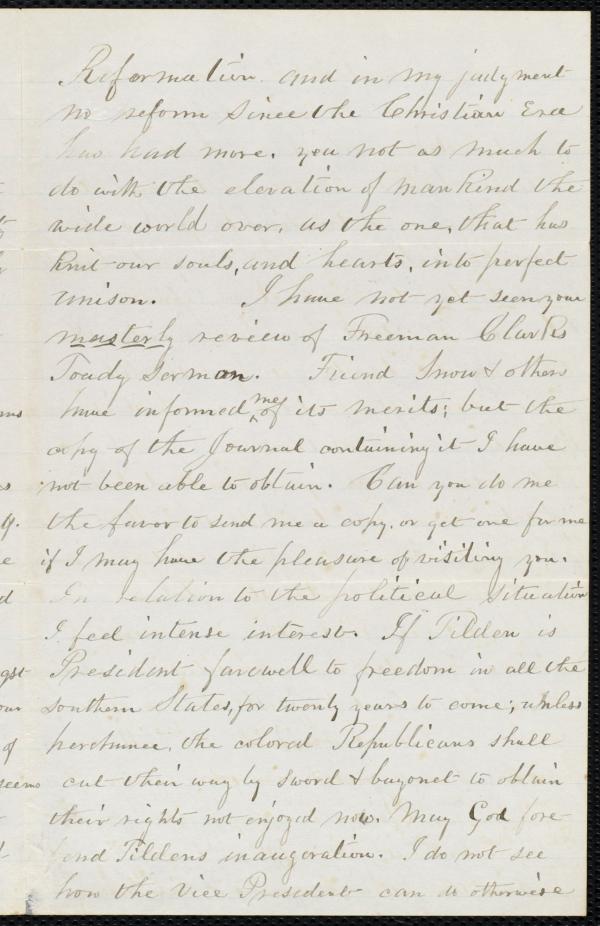 Reformation and in my judgment
no reform since the Christian Era
has had more. yea not as much to
do with the elevation of mankind the
wide world over, as the one, that has
knit our souls, and hearts, into perfect
unison. I have not yet seen your
masterly review of Freeman Clarks
Toady Sermon. Friend Snow & others
have informed me of its merits; but the
copy of the Journal containing it I have
not been able to obtain. Can you do me
the favor to send me a copy. or get one for me
if I may have the pleasure of visiting you.
In relation to the political situation
I feel intense interest. If Tilden is
President farewell to freedom in all the
southern States, for twenty years to come; unless
perchance, the colored Republicans shall
cut their way by sword & bayonet to obtain
their rights not enjoyed now. May God fore-
fend Tildens inauguration. I do not see
how the Vice President can do otherwise